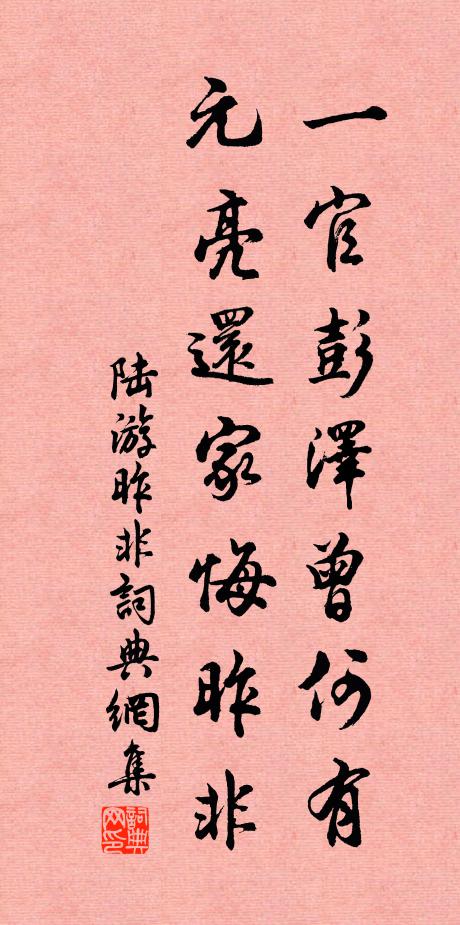 一官彭澤曾何有
元亮還家悔昨非
陸游昨非詞典網集
詞典网印